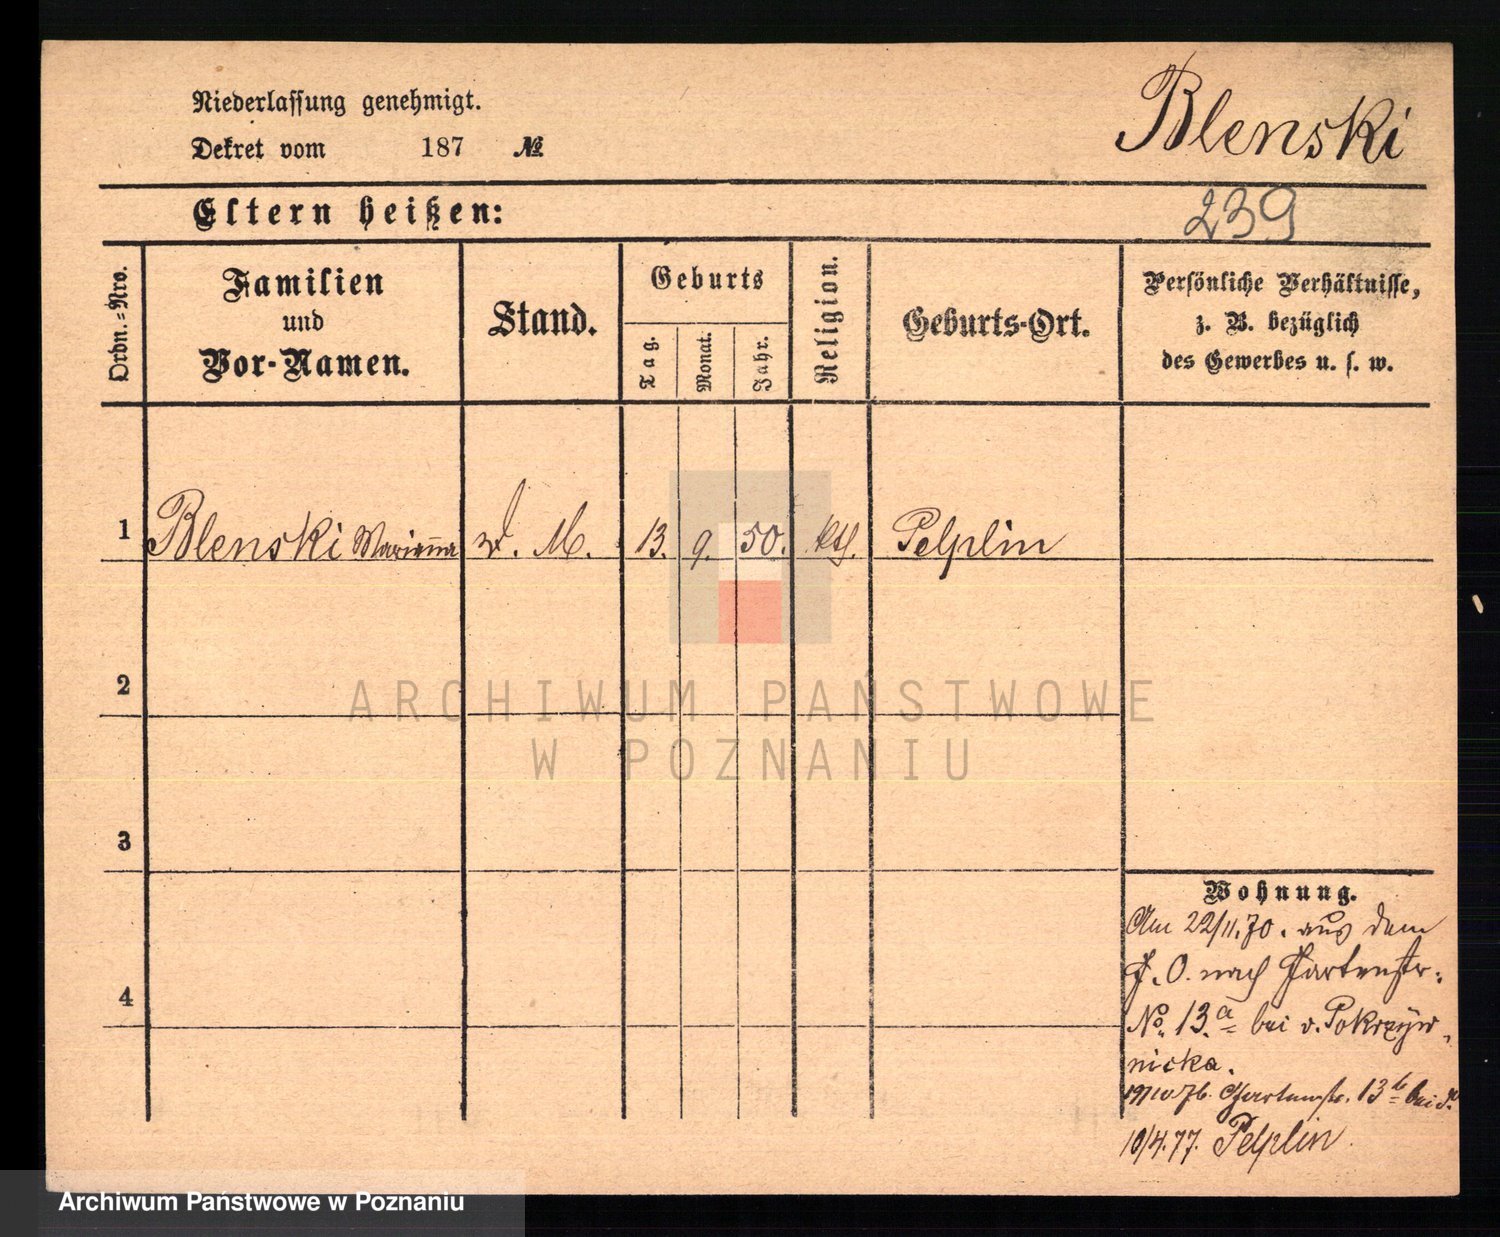 Niederlassung genehmigt.
Blenski
Dekret vom 187 №
Eltern heißen:
239
Ordn.=Nro.
Familien
und
Vor-Namen.
Stand.
Geburts
Tag.
Monat.
Jahr.
Religion.
Geburts-Ort.
Persönliche Verhältnisse,
z. B. bezüglich
des Gewerbes u. s. w.
1 Blenski Marianna d. M. 13. 9. 50. kth. Pelplin
2
ARCHIWUM PAŃSTWOWE
W POZNANIU
3
Wohnung.
Am 22/11.70. aus dem
J. O. nach Gartenstr.
4
No. 13.a bei v. Pokrzyw
nicka.
Gartenstr. 13b bei
10/4.77. Pelplin
Archiwum Państwowe w Poznaniu